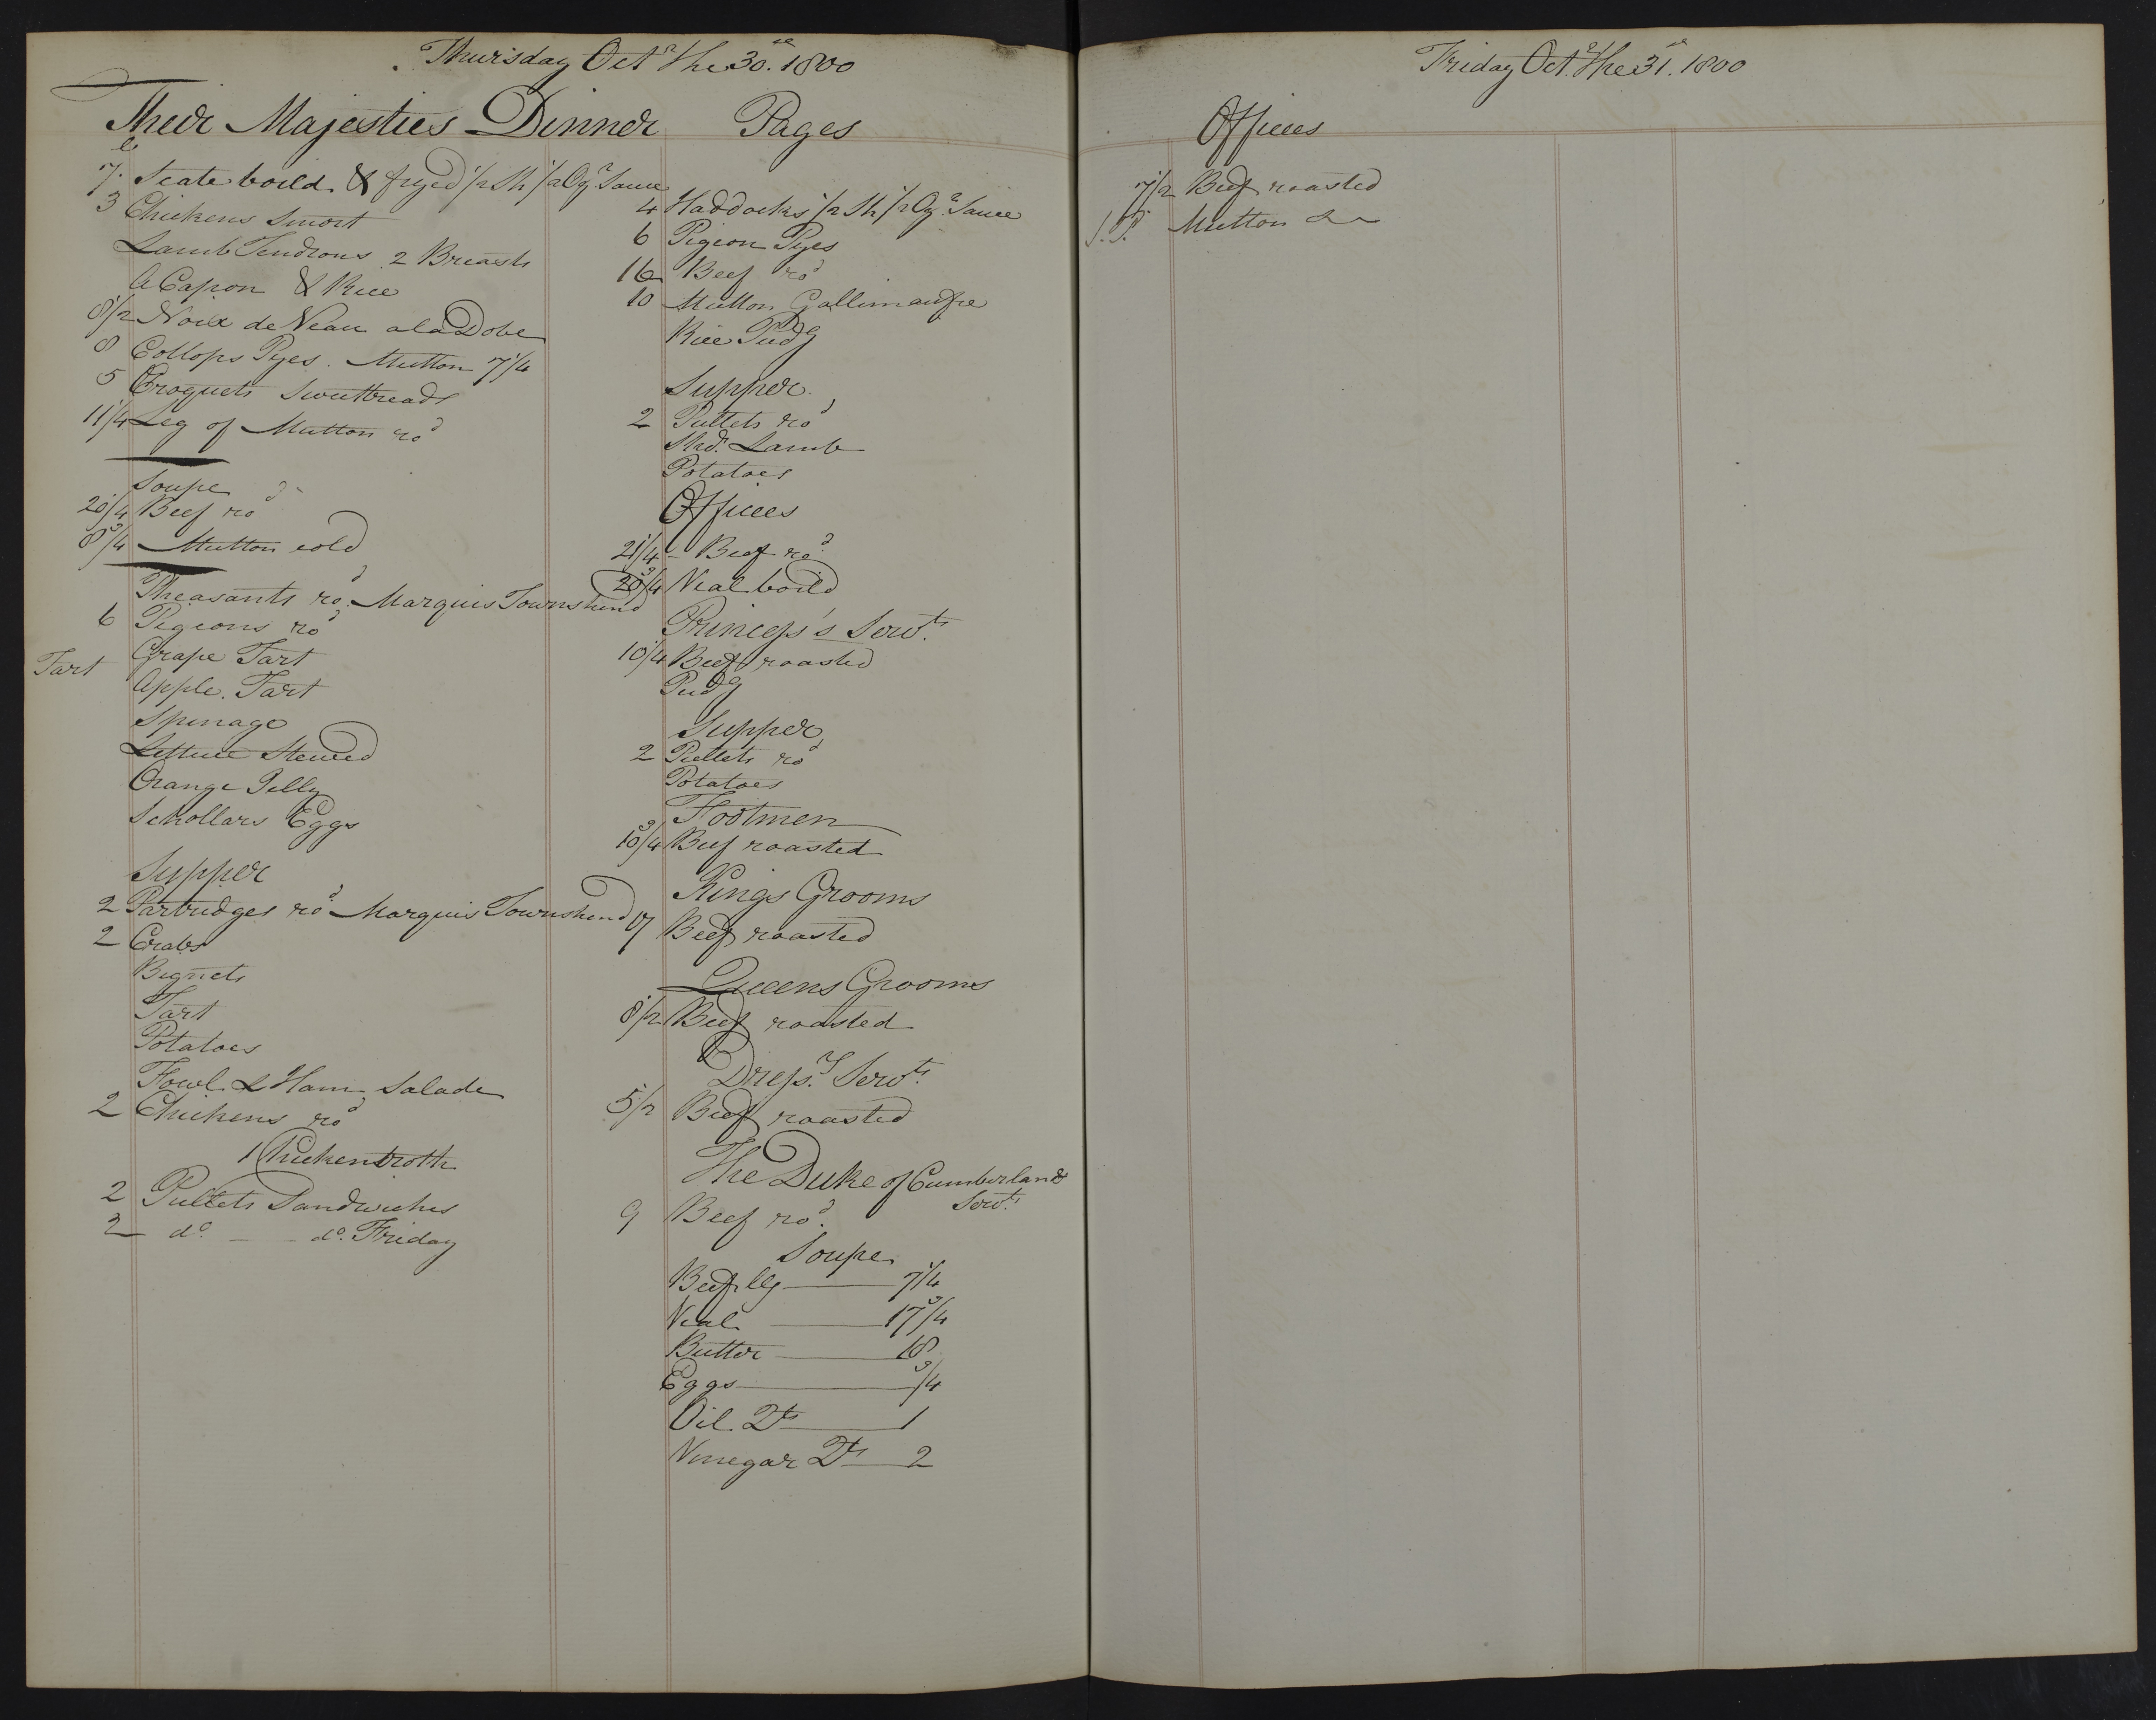 Thursday Octr The 30.th 1800
Their Majesties Dinner
7. Scate boild & fryed 1/2 Sh 1/2 Oyr Sauce
3 Chickens Smort
Lamb Tendrons 2 Breasts
A Capon & Rice
8 1/2 Noix de Veau a la Dobe
8 Collops Pyes. Mutton 7 1/4
5 Croquets Sweetbreads
11 1/4 Leg of Mutton rod
Soupe
20 1/4 Beef rod
8 3/4 Mutton cold
Pheasants rod. Marquis Townshend
6 Pigeons rod
Grape Tart
Tart
Apple. Tart
Spinage
Lettuce Stewed
Orange Jelly
Schollars Eggs
Supper
2 Partridges rod Marquis Townshend
2 Crabs
Bignets
Tart
Potatoes
Fowl & Ham Salade
2 Chickens rod
1 Chickenbroth
2 Pullets Sandwiches
2 do. — do. Friday
Pages
4 Haddocks 1/2 Sh 1/2 Oyr Sauce
6 Pigeon Pyes
16 Beef rod
10 Mutton Gallimaufre
Rice Pudg
Supper
2 Pullets rod
Shdr. Lamb
Potatoes
Offices
21 1/4 Beef rod
20 3/4 Veal boild
Princess's Servts.
10 1/4 Beef roasted
Pudg
Supper
2 Pullets rod
Potatoes
Footmen
10 3/4 Beef roasted
Kings Grooms
17 Beef roasted
Queens Grooms
8 1/2 Beef roasted
Dressrs. Servts.
5 1/2 Beef roasted
The Duke of Cumberlands
Servts.
9 Beef rod.
Soupe
Beef leg — 7 1/4
Veal — 17 3/4
Butter — 18
Eggs — 3/4
Oil Qts — 1
Vinegar Qts — 2
Friday Octr. The 31.st 1800
Offices
7 1/2 Beef roasted
S.P. Mutton do